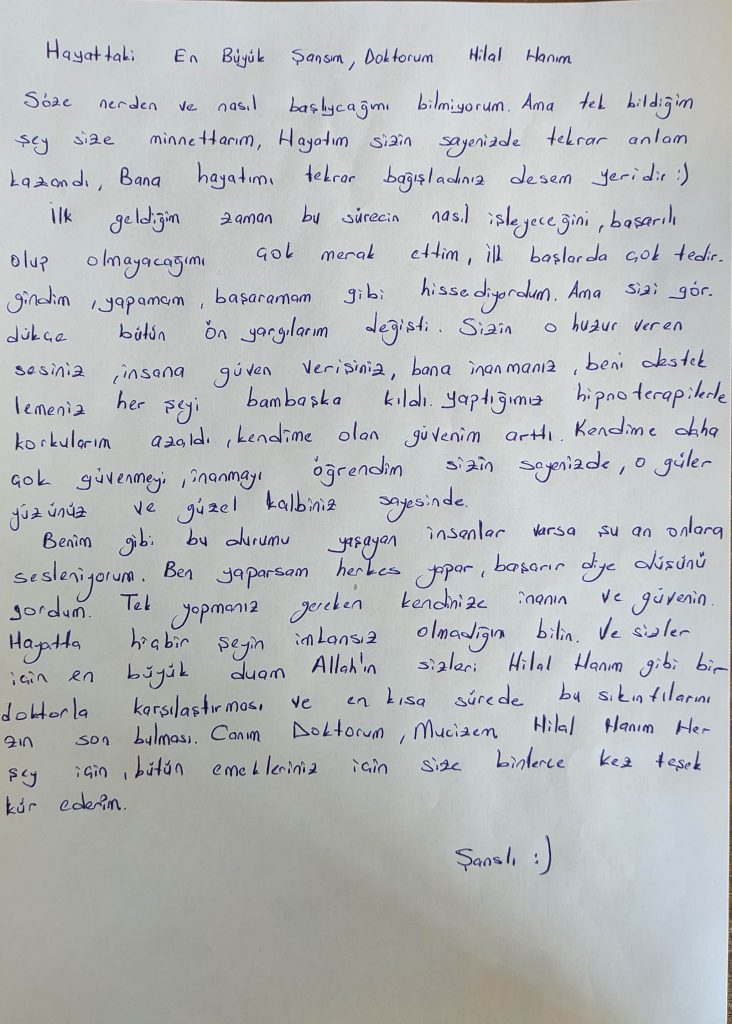 Hayattaki En Büyük Şansım, Doktorum Hilal Hanım
Söze nerden ve nasıl başlıycağımı bilmiyorum. Ama tek bildiğim
şey size minnettarım, Hayatım sizin sayenizde tekrar anlam
kazandı, Bana hayatımı tekrar bağışladınız desem yeridir :)
İlk geldiğim zaman bu sürecin nasıl işleyeceğini, başarılı
olup olmayacağımı çok merak ettim, ilk başlarda çok tedir.
gindim, yapamam, başaramam gibi hissediyordum. Ama sizi gör.
dükçe bütün ön yargılarım değişti. Sizin o huzur veren
sesiniz, insana güven verişiniz, bana inanmanız, beni destek
lemeniz her şeyi bambaşka kıldı. Yaptığımız hipnoterapilerle
korkularım azaldı, kendime olan güvenim arttı. Kendime daha
çok güvenmeyi, inanmayı öğrendim sizin sayenizde, o güler
yüzünüz ve güzel kalbiniz sayesinde.
Benim gibi bu durumu yaşayan insanlar varsa şu an onlara
sesleniyorum. Ben yaparsam herkes yapar, başarır diye düşünü
yordum. Tek yapmanız gereken kendinize inanın ve güvenin.
Hayatta hiçbir şeyin imkansız olmadığın bilin. Ve sizler
için en büyük duam Allah'ın sizleri Hilal Hanım gibi bir
doktorla karşılaştırması ve en kısa sürede bu sıkıntılarını
zın son bulması. Canım Doktorum, Mucizem Hilal Hanım Her
şey için, bütün emekleriniz için size binlerce kez teşek
kür ederim.
Şanslı :)